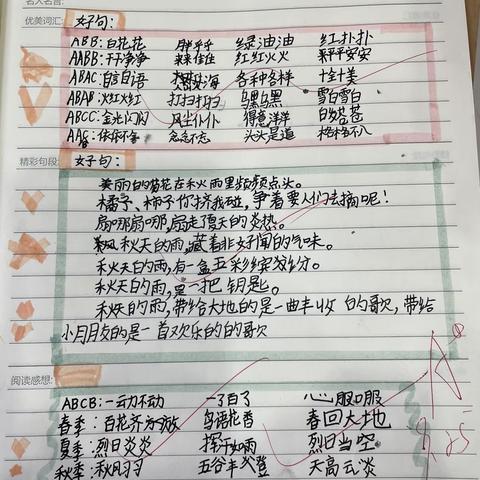 名人名言:
优美词汇: 好句:
ABB:白花花 胖乎乎 绿油油 红扑扑
AABB:干干净净 来来往往 红红火火 平平安安
ABAC:自言自语 各种各样 十全十美
ABAB:火红火红 打扫打扫 乌黑乌黑 雪白雪白
ABCC:金光闪闪 风尘仆仆 得意洋洋
念念不忘 头头是道 格格不入
精彩句段: 好句:
美丽的菊花在秋雨里频频点头。
橘子、柿子你挤我碰,争着要人们去摘呢!
扇哪扇哪,扇走了夏天的炎热。
秋天的雨,藏着非常好闻的气味。
秋天的雨,有一盒五彩缤纷。
秋天的雨,是一把钥匙。
秋天的雨,带给大地的是一曲丰收的歌,带给
小朋友的是一首欢乐的的歌
阅读感想:
ABCB:一动不动 一了白了 心服口服
春季:百花齐放 鸟语花香 春回大地
夏季:烈日炎炎 挥汗如雨 烈日当空
秋季:秋风习习 五谷丰登 天高云淡
A
9.25